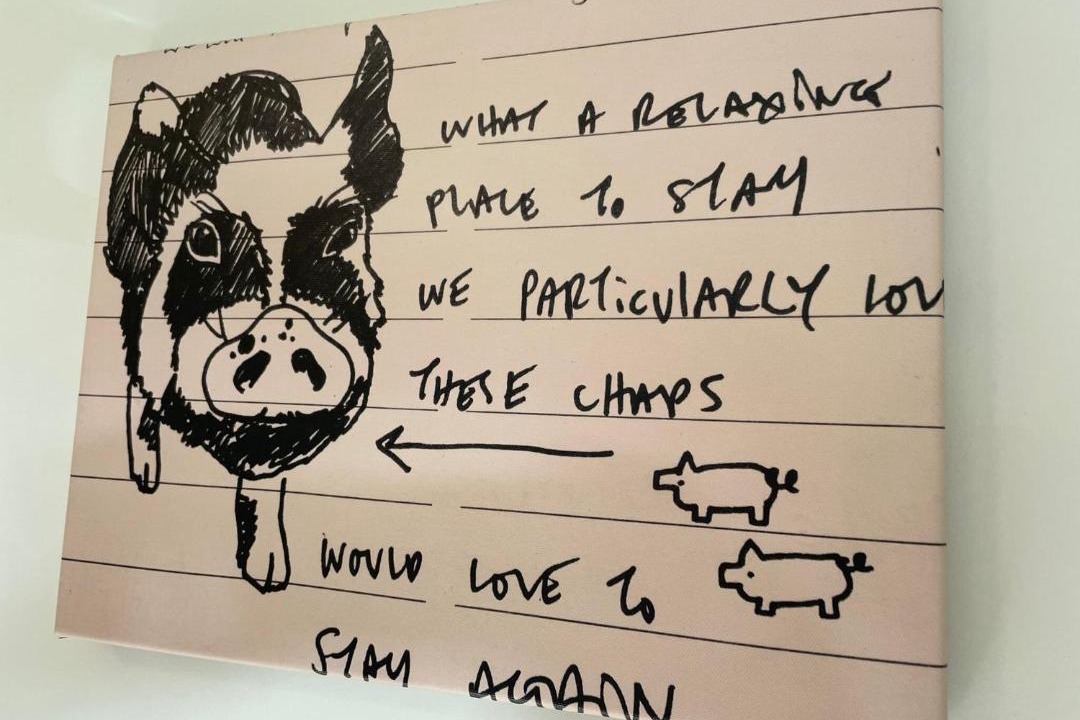 WHAT A RELAXING
PLACE TO STAY
WE PARTiCULARLY LOV
THESE CHAPS
WOULD LOVE TO
STAY AGAIN